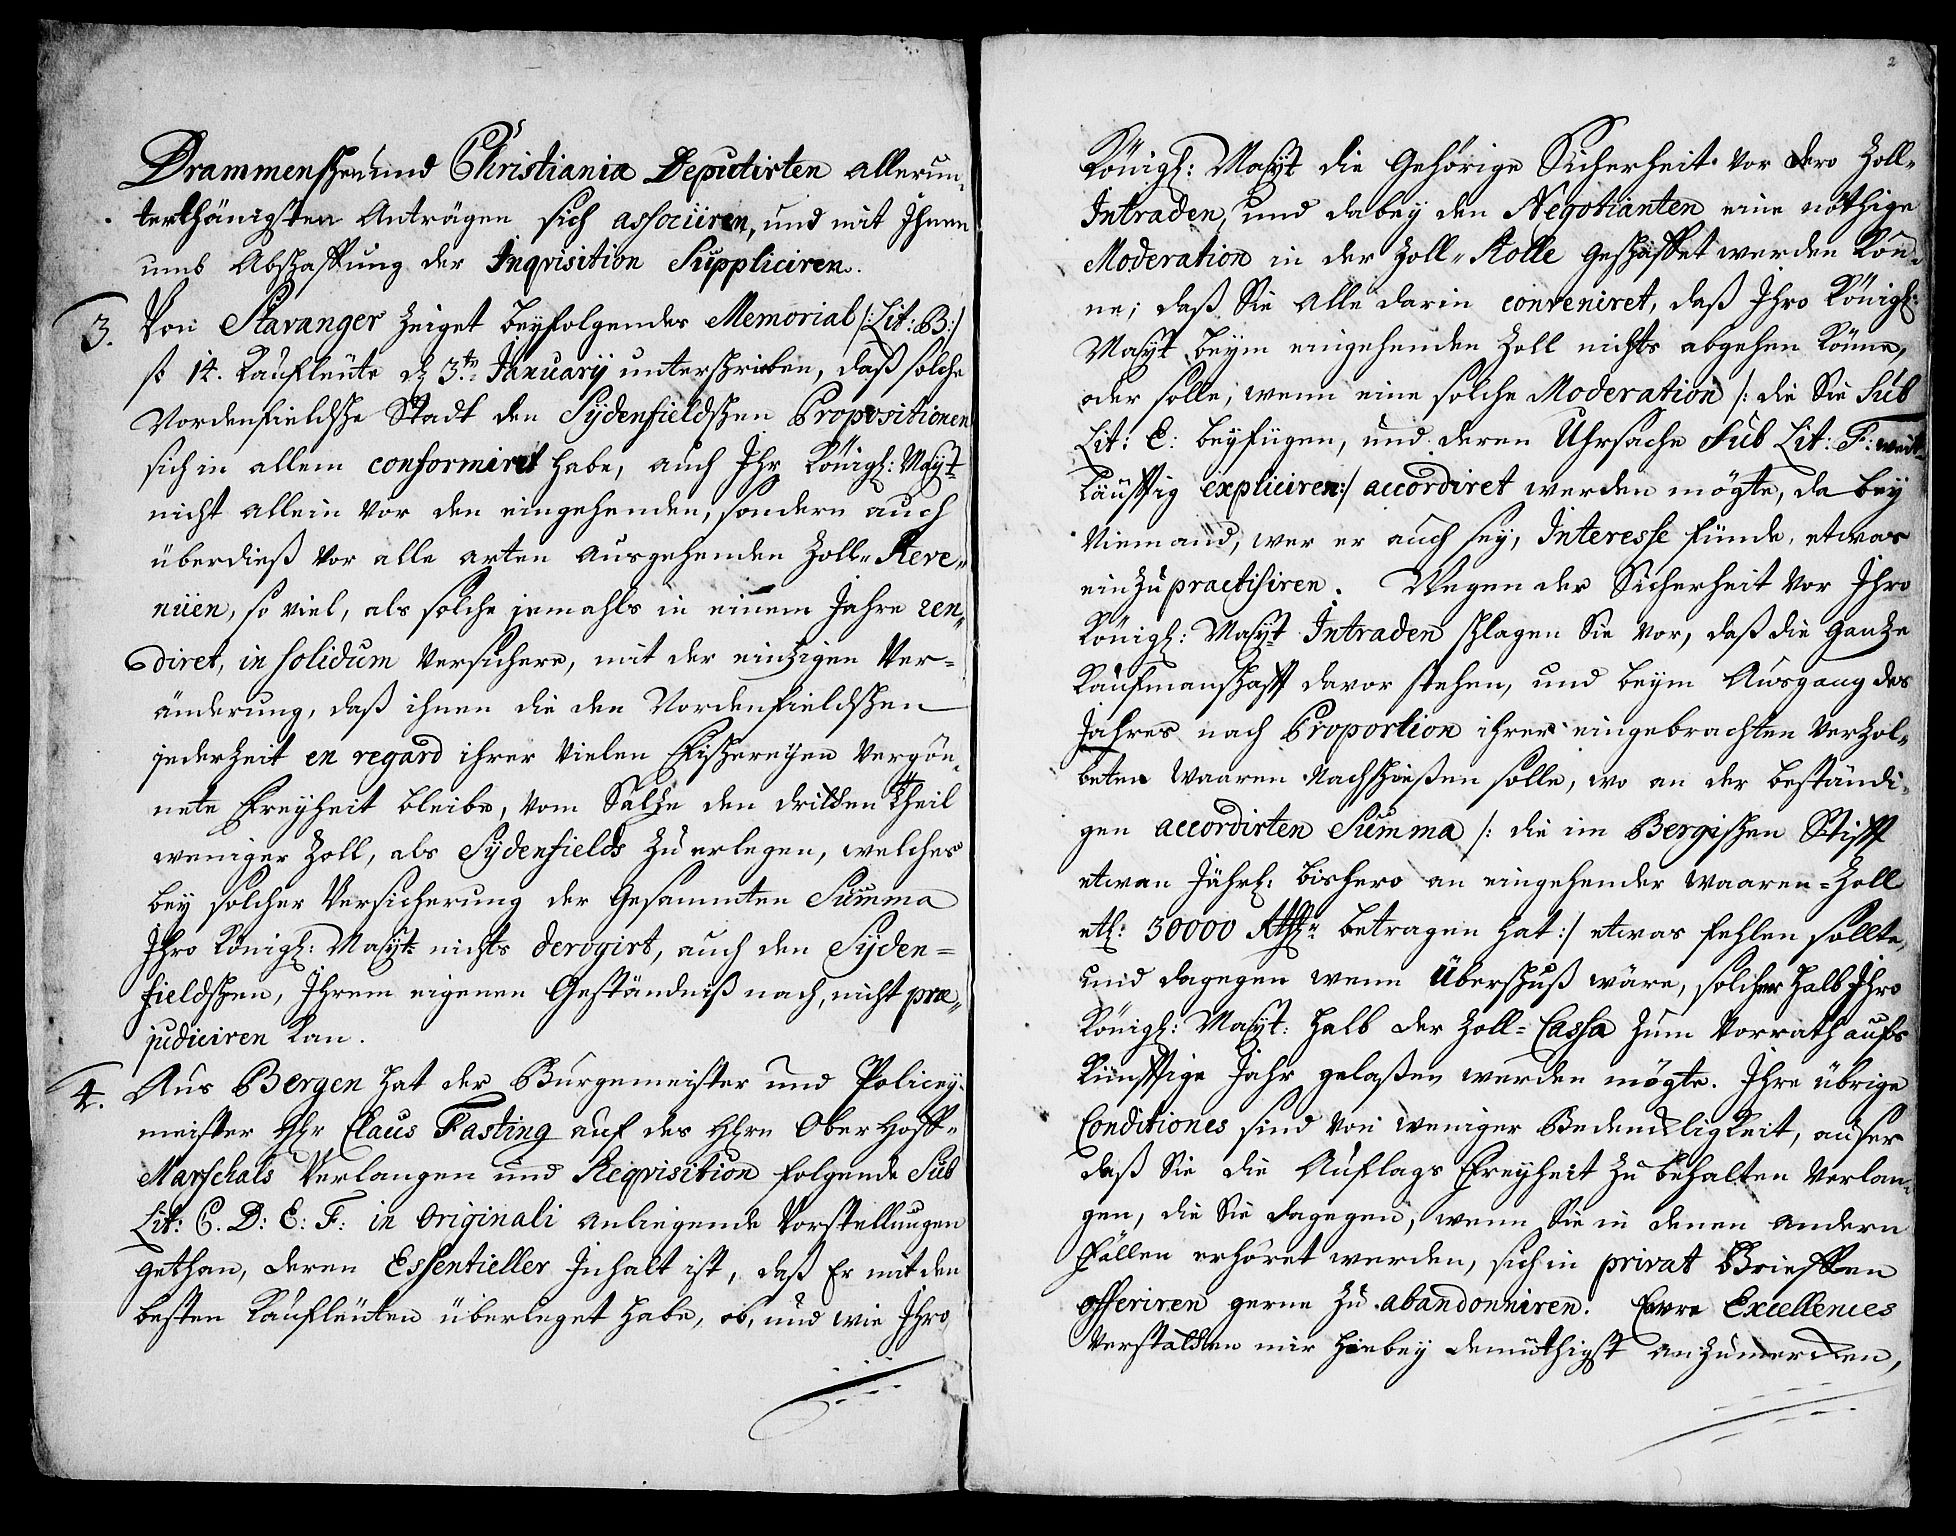 Drammenschen und Christiania Deputirten allerun-
terthänigsten Anträgen sich associiren, und mit Ihnen
umb Abschaffung der Inqvisition Suppliciren.
3. Von Stavanger zeiget beyfolgendes Memorial /: Lit: B:/
so 14. Kauffleüte d 3.ten January unterschrieben, daß solche
Nordenfieldsche Stadt den Sydenfieldschen Propositionen
sich in allem conformiret habe, auch Ihr Königl: Mayt
nicht allein vor den eingehenden, sondern auch
überdieß vor alle arten ausgehenden Zoll-Reve-
nüen, so viel, als solche jemahls in einem Jahre ren-
diret, in solidum versichere, mit der eintzigen Ver-
änderung, daß ihnen die den Nordenfieldschen
jederzeit en regard ihrer vielen Fischereyen vergön-
nete Freyheit bleibe, vom Saltze den dritten theil
weniger Zoll, als Sydenfields zu erlegen, welches
bey solcher Versicherung der gesammten Summa
Ihro Königl: Mayt: nichts derogirt, auch den Syden-
fieldschen, Ihrem eigenen Geständniß nach, nicht præ-
judiciren kan.
4. Aus Bergen hat der Bürgemeister und Policey-
meister HEr Claus Fasting auf des HErn Ober Hoff-
Marschals Verlangen und Reqvisition folgende Sub
Lit: C. D: E: F: in Originali anliegende Vorstellungen
gethan, deren Essentieller Inhalt ist, daß Er mit den
besten Kauffleüten überleget habe, ob, und wie Ihro
2
Königl: Mayt die gehörige Sicherheit vor dero Zoll-
Intraden, und dabey den Negotianten eine nöthige
Moderation in der Zoll-Rolle geschaffet werden kön-
ne; daß Sie alle darin conveniret, daß Ihro Königl:
Mayt beym eingehenden Zoll nichts abgehen könne,
oder solle, wenn eine solche Moderation /: die Sie Sub
Lit: E: beyfügen, und deren Uhrsache Sub Lit: F: weit-
läufftig expliciren:/ accordiret werden mögte, da bey
Niemand, wer er auch sey, Interesse fünde, etwas
einzupractisiren. Wegen der Sicherheit vor Ihro
Königl: Mayt Intraden schlagen Sie vor, daß die gantze
Kaufmanschafft davor stehen, und beym Ausgang des
Jahres nach Proportion ihrer eingebrachten verzol-
beten Waaren nachschießen solle, wo an der beständi-
gen accordirten Summa /: die im Bergischen Stifft
etwan jährl. bishero an eingehender Waaren-Zoll
etl: 30000 Rthlr betragen hat:/ etwas fehlen sollte,
und dagegen wenn Überschuß wäre, solcher halb Ihro
Königl: Mayt: halb der Zoll-Cassa zum Vorrath aufs
künfftige Jahr gelaßen werden mögte. Ihre übrige
Conditiones sind von weniger Bedencklichkeit, außer
daß Sie die Auflags Freyheit zu behalten verlan-
gen, die Sie dagegen, wenn Sie in denen andern
Fällen erhöret werden, sich in privat Brieffen
offeriren gerne zu abandonniren. Ewre Excellences
verstatten mir hiebey demüthigst anzumercken,